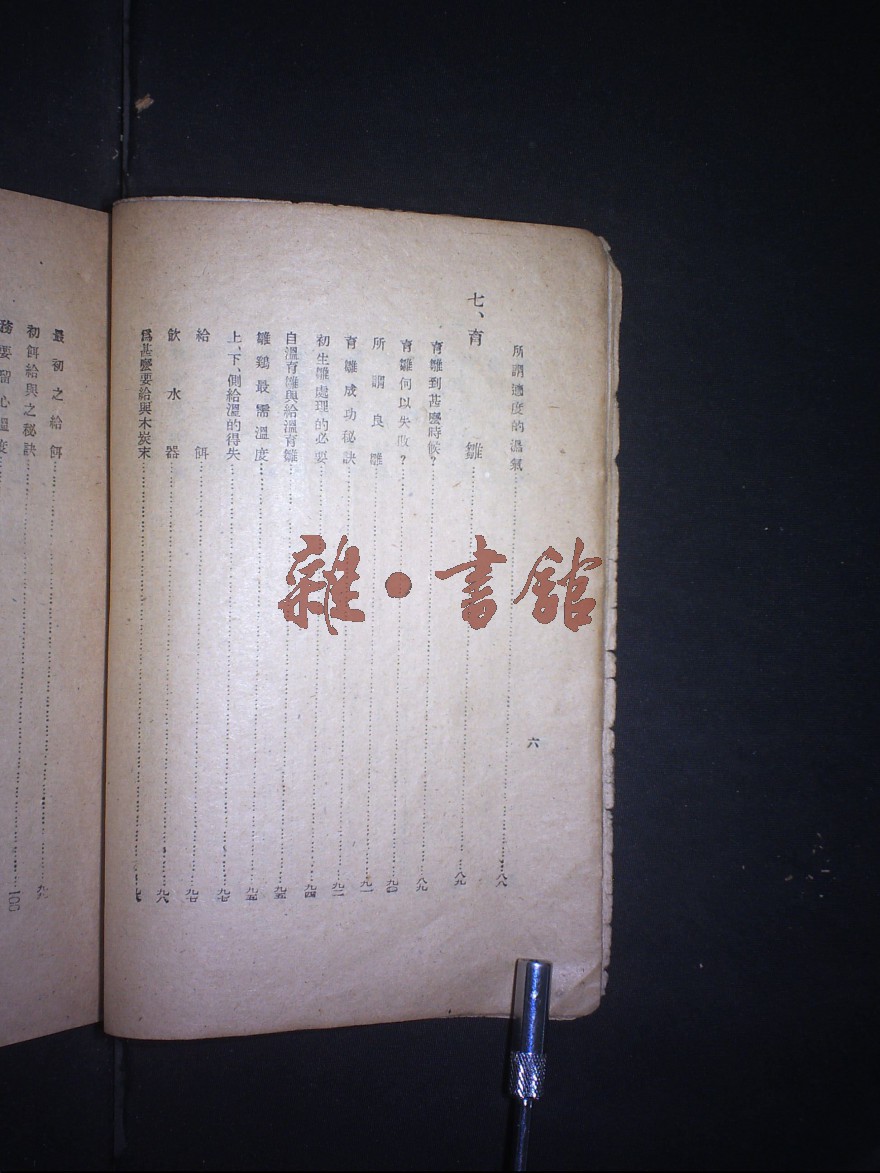 六
所謂適度的濕氣……八八
七、育雛……八九
育雛到甚麼時候?……八九
育雛何以失敗?……九〇
所謂良雛……九一
育雛成功秘訣……九二
初生雛處理的必要……九四
自溫育雛與給溫育雛……九五
雛鷄最需溫度……九五
上、下、側給溫的得失……九七
給餌……九七
飲水器……九八
爲甚麼要給與木炭末
最初之給餌
初餌給與之秘訣……九九
務要留心溫度……一〇〇
雜·書館